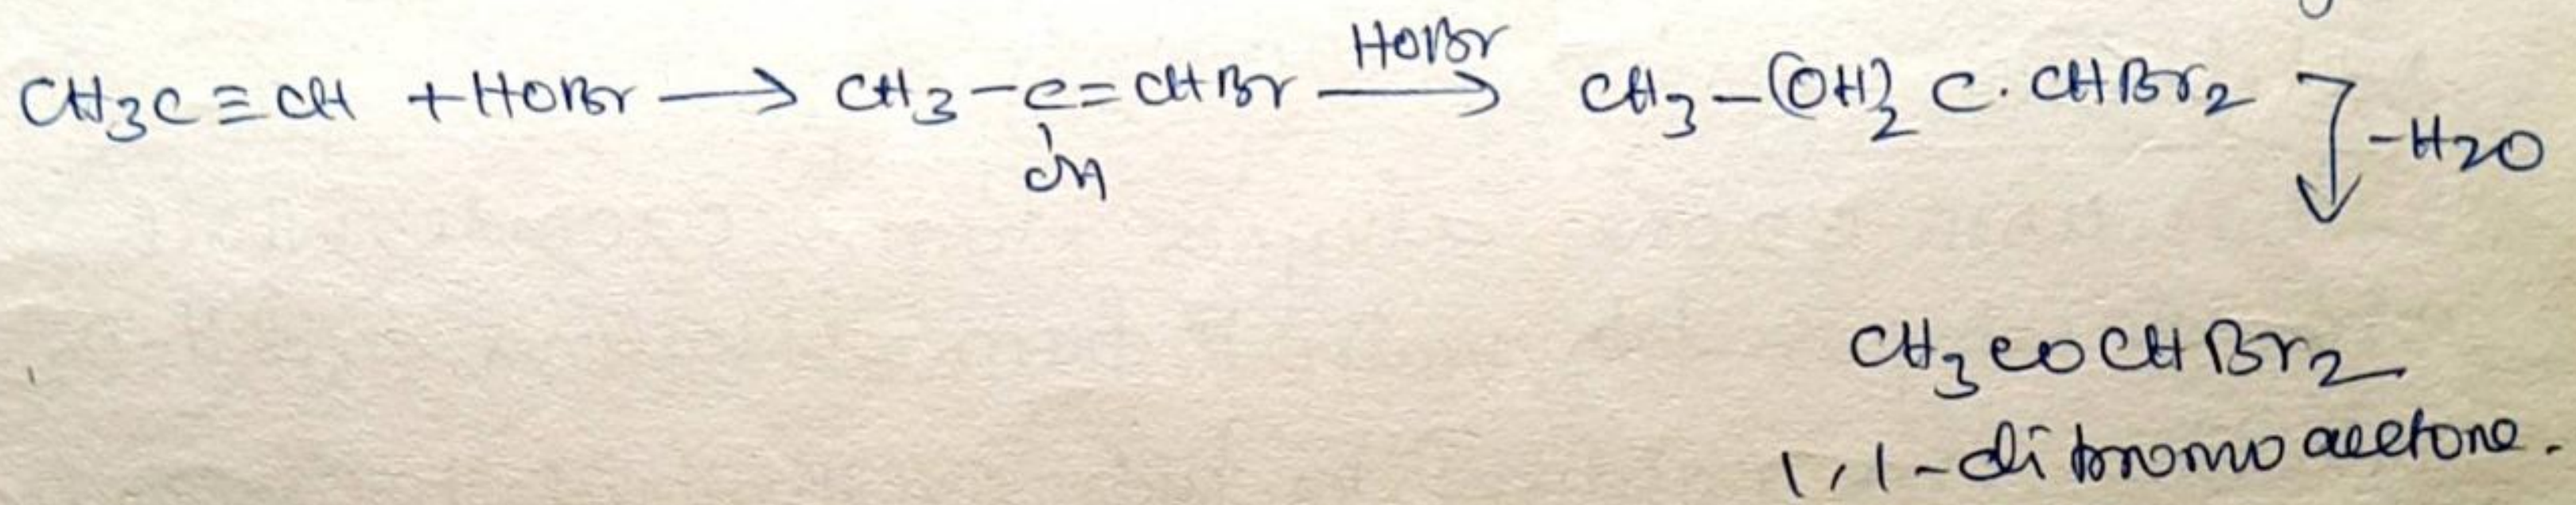 CH3C ≡ CH + HOBr ⟶ CH3 – C = CHBr ⟶ CH3 – (OH)2 C · CHBr2
HOBr
OH
–H2O
CH3COCHBr2
1,1-dibromoacetone.